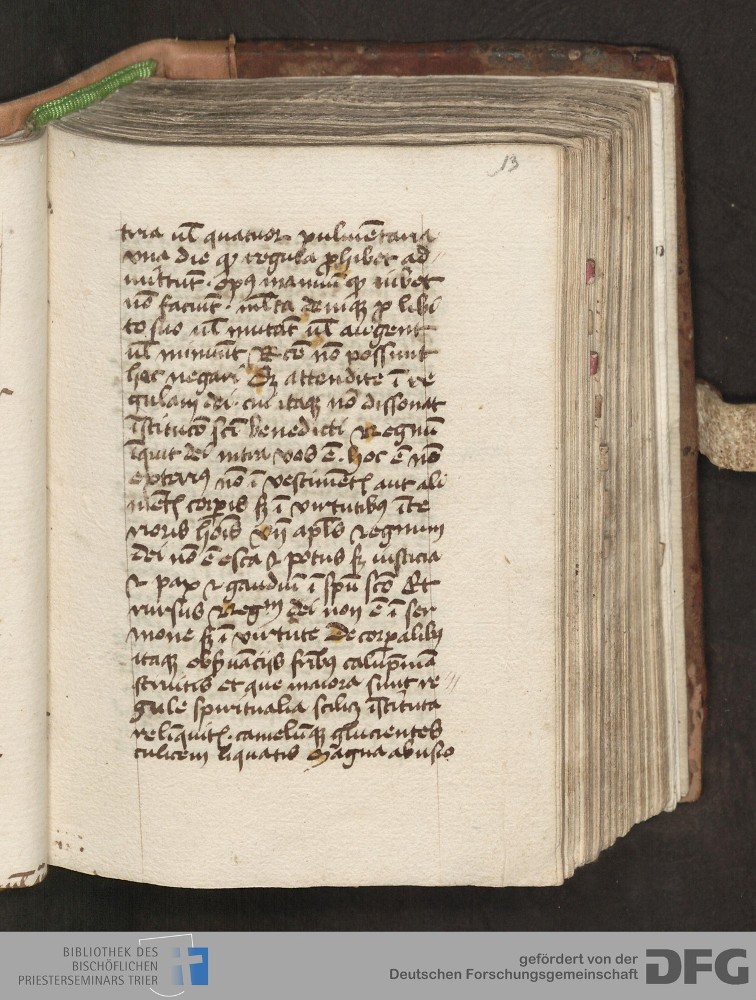 13
tria ul̅ quatuor pulme̅taria
vna die qd̕ regula ꝓhibet ad
mittu̅t · opꝰ manuu̅ qd̕ iubet
no̅ faciu̅t · ml̅ta deniqꝫ ꝓ libi
to suo ul̅ muta̅t ul̅ augent
ul̅ minuu̅t Et eo̅ no̅ possunt
hec negari Sꝫ attendite i̅ re
gulam dei · cui itaqꝫ no̅ dissonat
i̅stituco̅ sci̅ benedicti Regnu̅
i̅quit dei intra vos e̅ · hoc e̅ no̅
exteriꝰ no̅ i̅ vestime̅tꝭ aut ali
me̅tꝭ corporis sꝫ i̅ virtutibꝰ i̅te
rioris ho̅is Vn̅ apl̅s regnum
dei no̅ e̅ esca ⁊ potus sꝫ iusticia
⁊ pax ⁊ gaudiu̅ i̅ spu̅ sco̅ Et
rursus Regm̅ dei non e̅ i̅ ser
mone sꝫ i̅ virtute De corpalibꝰ
itaqꝫ obẜua̅ciis fribꝰ calu̅pnia̅
struitis et que maiora sunt re
gule spiritualia scilicꝫ i̅stituta
reli̅quitꝭ · camelu̅qꝫ glucientes
culicem liquatis Magna abusio
BIBLIOTHEK DES
BISCHÖFLICHEN
PRIESTERSEMINARS TRIER
gefördert von der
Deutschen Forschungsgemeinschaft
DFG